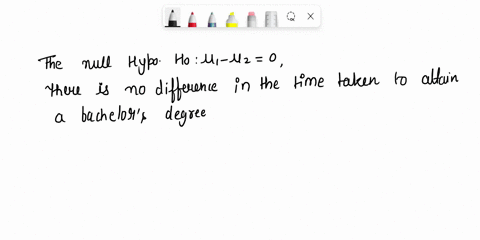 The null Hypo. Ho: μ1-μ2 = 0,
there is no difference in the time taken to attain
a bachelor's degree